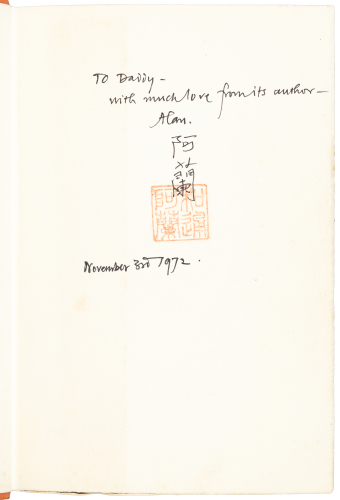 To Daddy –
with much love from its author –
Alan.
阿
蘭
和通
阿蘭
November 3rd 1972.